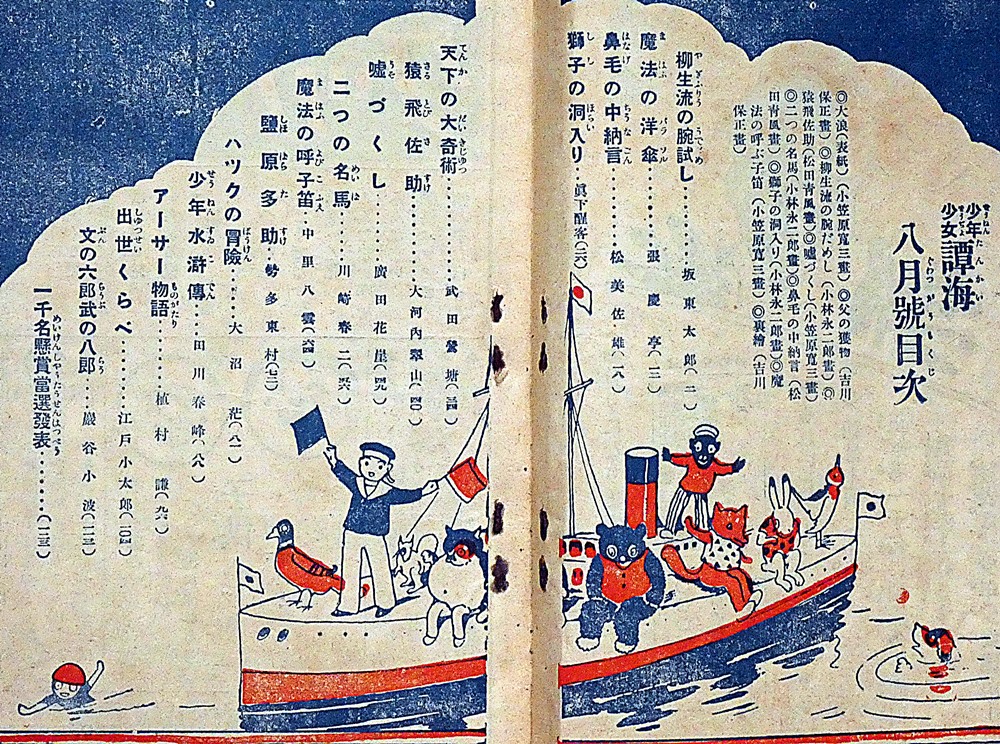 少年少女譚海
八月號目次
◎大浪(表紙)(小笠原寬三畫)◎父の獲物(吉川
保正畫)◎柳生流の腕だめし(小林永二郎畫)◎
猿飛佐助(松田青風畫)◎噓づくし(小笠原寬三畫)
◎二つの名馬(小林永二郎畫)◎鼻毛の中納言(松
田青風畫)◎獅子の洞入り(小林永二郎畫)◎魔
法の呼ぶ子笛(小笠原寬三畫)◎裏繪(吉川
保正畫)
柳生流の腕試し……坂東太郎(二)
魔法の洋傘……張慶亭(一二)
鼻毛の中納言……松美佐雄(一八)
獅子の洞入り…眞下醒客(二六)
天下の大奇術……武田鶯塘(三四)
猿飛佐助……大河內翠山(四〇)
噓づくし……廣田花崖(四九)
二つの名馬……川崎春二(五六)
魔法の呼子笛…中里八雲(六四)
鹽原多助…勢多東村(七三)
ハツクの冒險……大沼茫(八一)
少年水滸傳……田川春峰(八八)
アーサー物語……植村謙(九六)
出世くらべ……江戶小太郎(一〇四)
文の六郎武の八郎…巖谷小波(一一三)
一千名懸賞當選發表……(一二三)